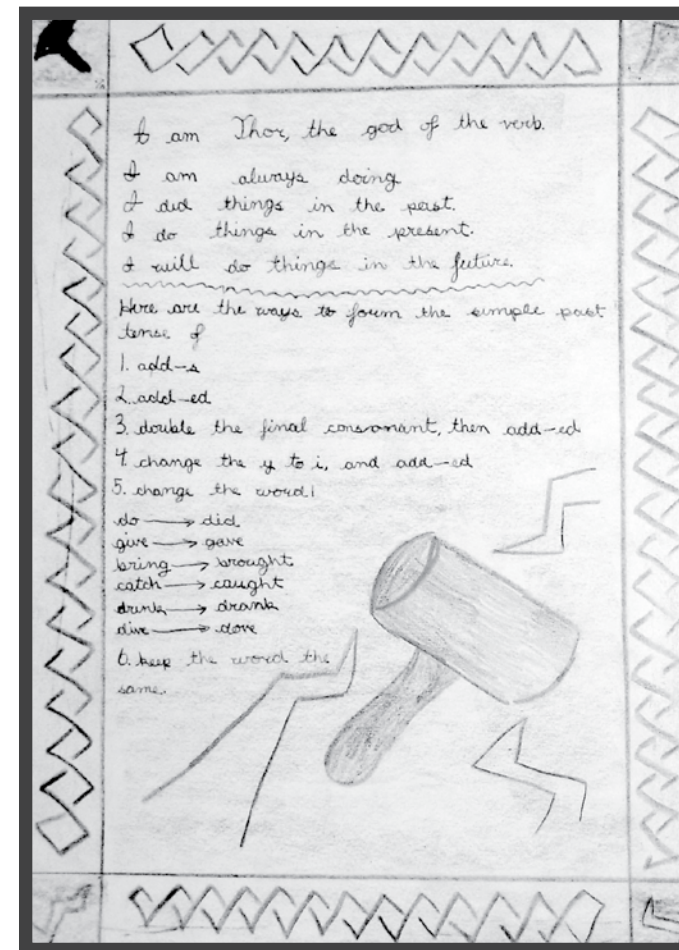 I am Thor, the god of the verb.
I am always doing
I did things in the past.
I do things in the present.
I will do things in the future.
Here are the ways to form the simple past
tense of
1. add-s
2. add-ed
3. double the final consonant, then add-ed
4. change the y to i, and add-ed
5. change the word!
do → did
give → gave
bring → brought
catch → caught
drink → drank
dive → dove
6. keep the word the
same.